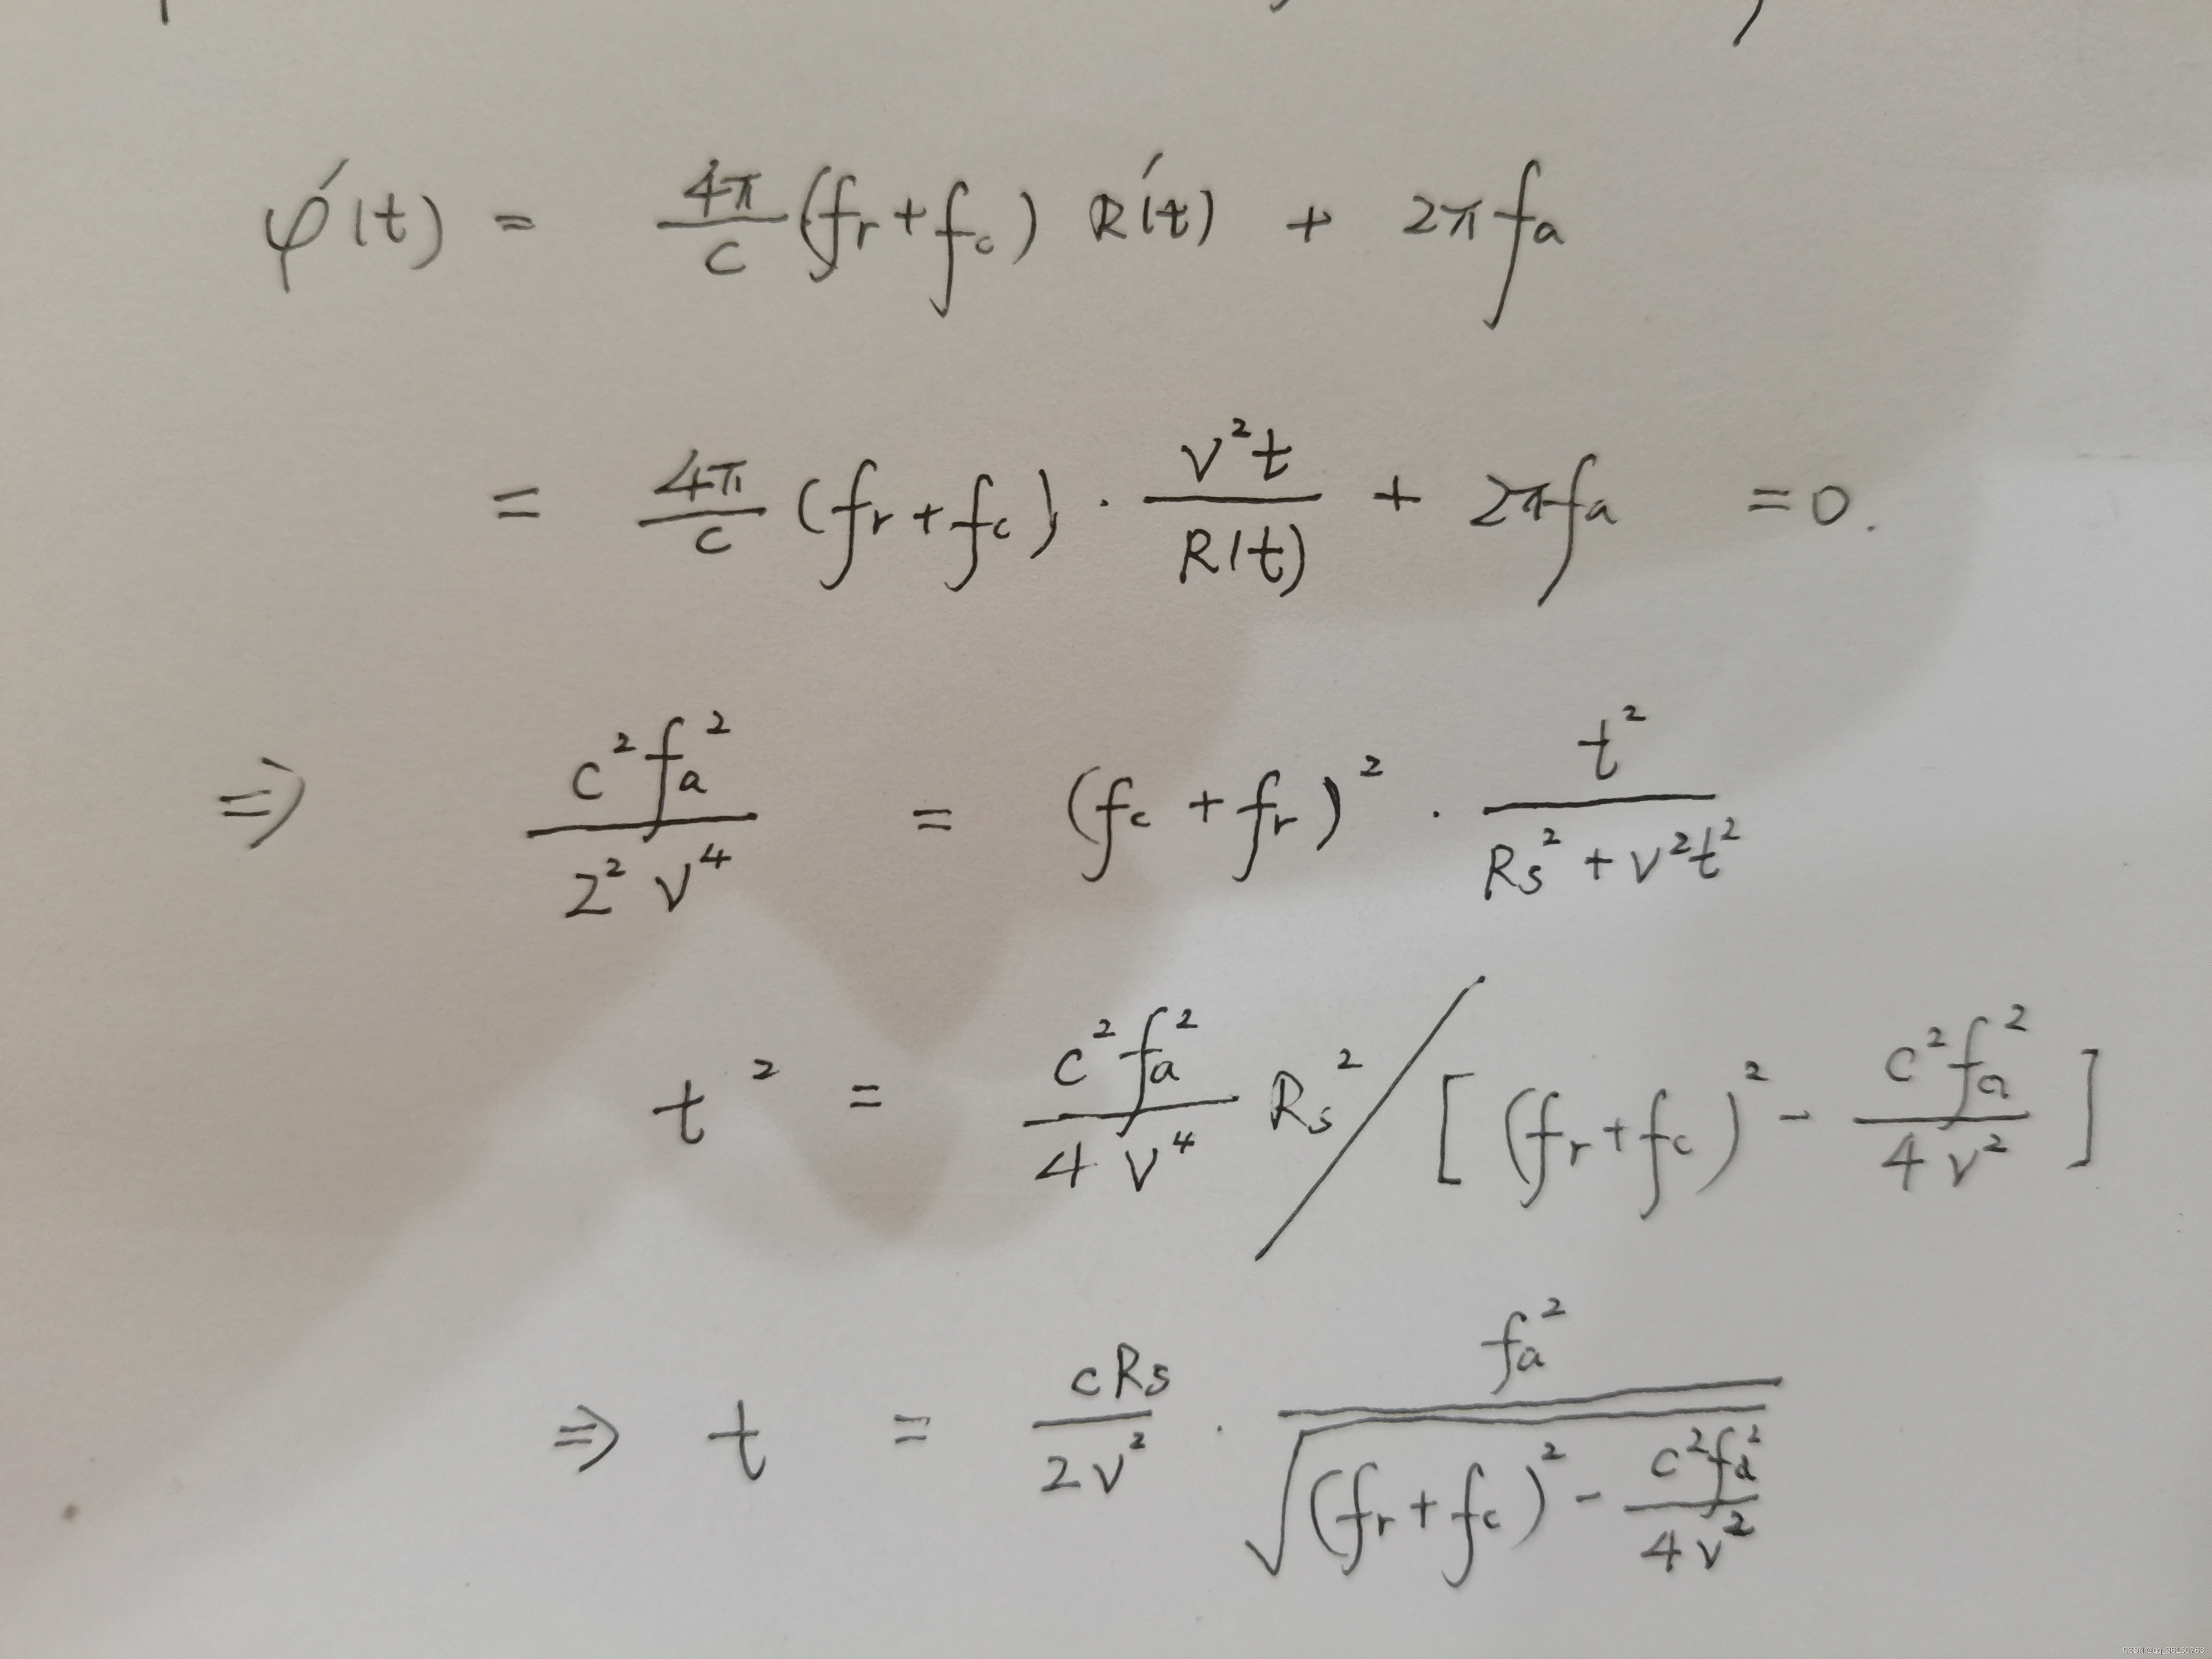 φ'(t) = 4π/c (fr + fc) R'(t) + 2π fa
= 4π/c (fr + fc) · v²t / R(t) + 2π fa = 0.
⇒ c² fa² / 2² v⁴ = (fc + fr)² · t² / Rs² + v²t²
t² = c² fa² / 4 v⁴ Rs² / [ (fr + fc)² - c² fa² / 4 v² ]
⇒ t = c Rs / 2 v² · fa² / √( (fr + fc)² - c² fa² / 4 v² )